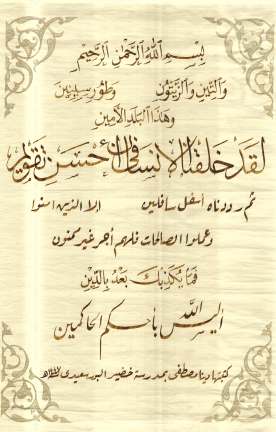 بِسْمِ اللَّهِ الرَّحْمَٰنِ الرَّحِيمِ
وَالتِّينِ وَالزَّيْتُونِ وَطُورِ سِينِينَ
وَهَٰذَا الْبَلَدِ الْأَمِينِ
لَقَدْ خَلَقْنَا الْإِنسَانَ فِي أَحْسَنِ تَقْوِيمٍ
ثم رددناه أسفل سافلين الا الذين امنوا
وعملوا الصالحات فلهم أجر غير ممنون
فَمَا يُكَذِّبُكَ بَعْدُ بِالدِّينِ
أليس الله بأحكم الحاكمين
مصطفى بمدرسة خضير البورسعيدي